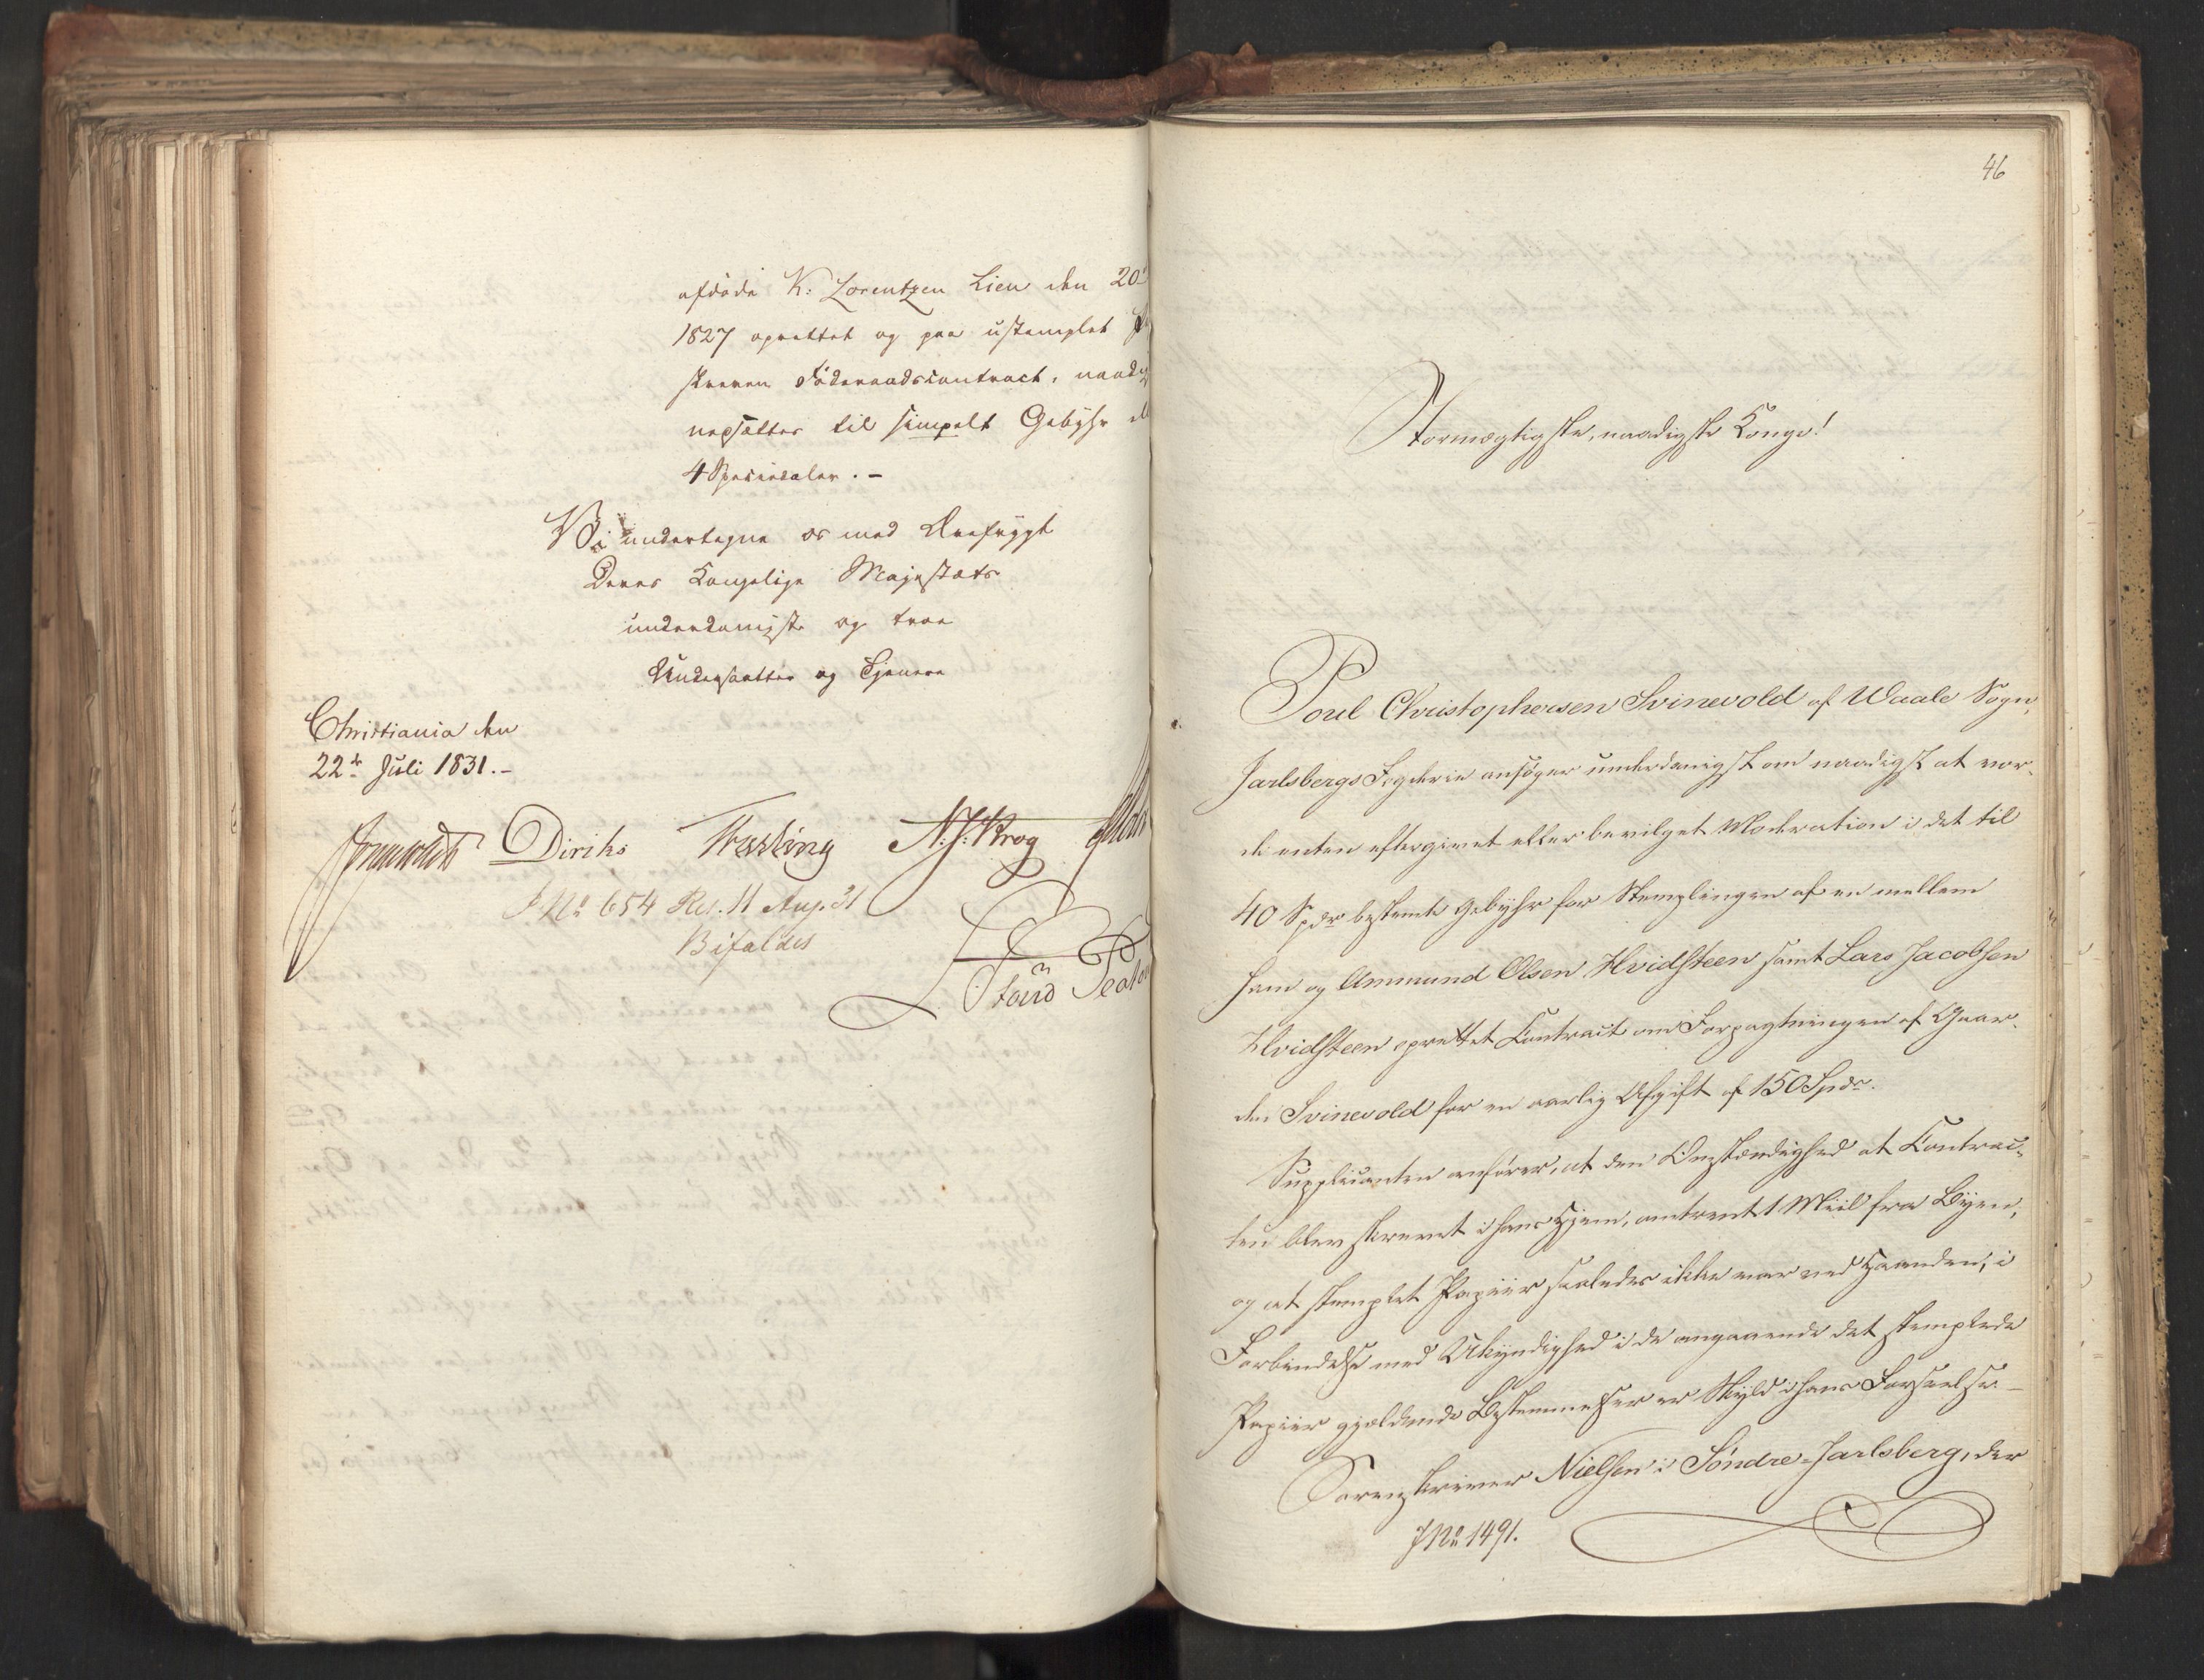 afdøde K: Lorentzen Lien den 20de
1827 oprettet og paa ustemplet
skreven Föderaadscontract, naadigst
nedsættes til simpelt Gebyhr
4 Speciedaler. -
Vi undertegne os med Ærefrygt
Deres Kongelige Majestæts
underdanigste og troe
Undersaatter og Tjenere
Christiania den
22de Juli 1831. -
Diriks Fasting N. J. Krog
J No 654 Res. 11 Aug. 31
Bifaldes
46
Stormægtigste, naadigste Konge!
Poul Christophersen Svinevold af Waale Sogn,
Jarlsbergs Fogderie ansøger underdanigst om naadigst at vor-
de enten eftergivet eller bevilget Moderation i det til
40 Spdr bestemte Gebyhr for Stemplingen af en mellem
ham og Ammund Olsen Hvidsteen samt Lars Jacobsen
Hvidsteen oprettet Contract om Forpagtningen af Gaar-
den Svinevold for en aarlig Afgift af 150 Spdr.
Supplicanten anfører, at den Omstændighed at Contrac-
ten blev skrevet i hans Hjem, omtrent 1 Miil fra Byen,
og at stemplet Papiir saaledes ikke var ved Haanden, i
Forbindelse med Ukyndighed i de angaaende det stemplede
Papiir gjældende Bestemmelser er Skyld i hans Forseelse. -
Sorenskriver Nielsen i Söndre-Jarlsberg, der
J No 1491.